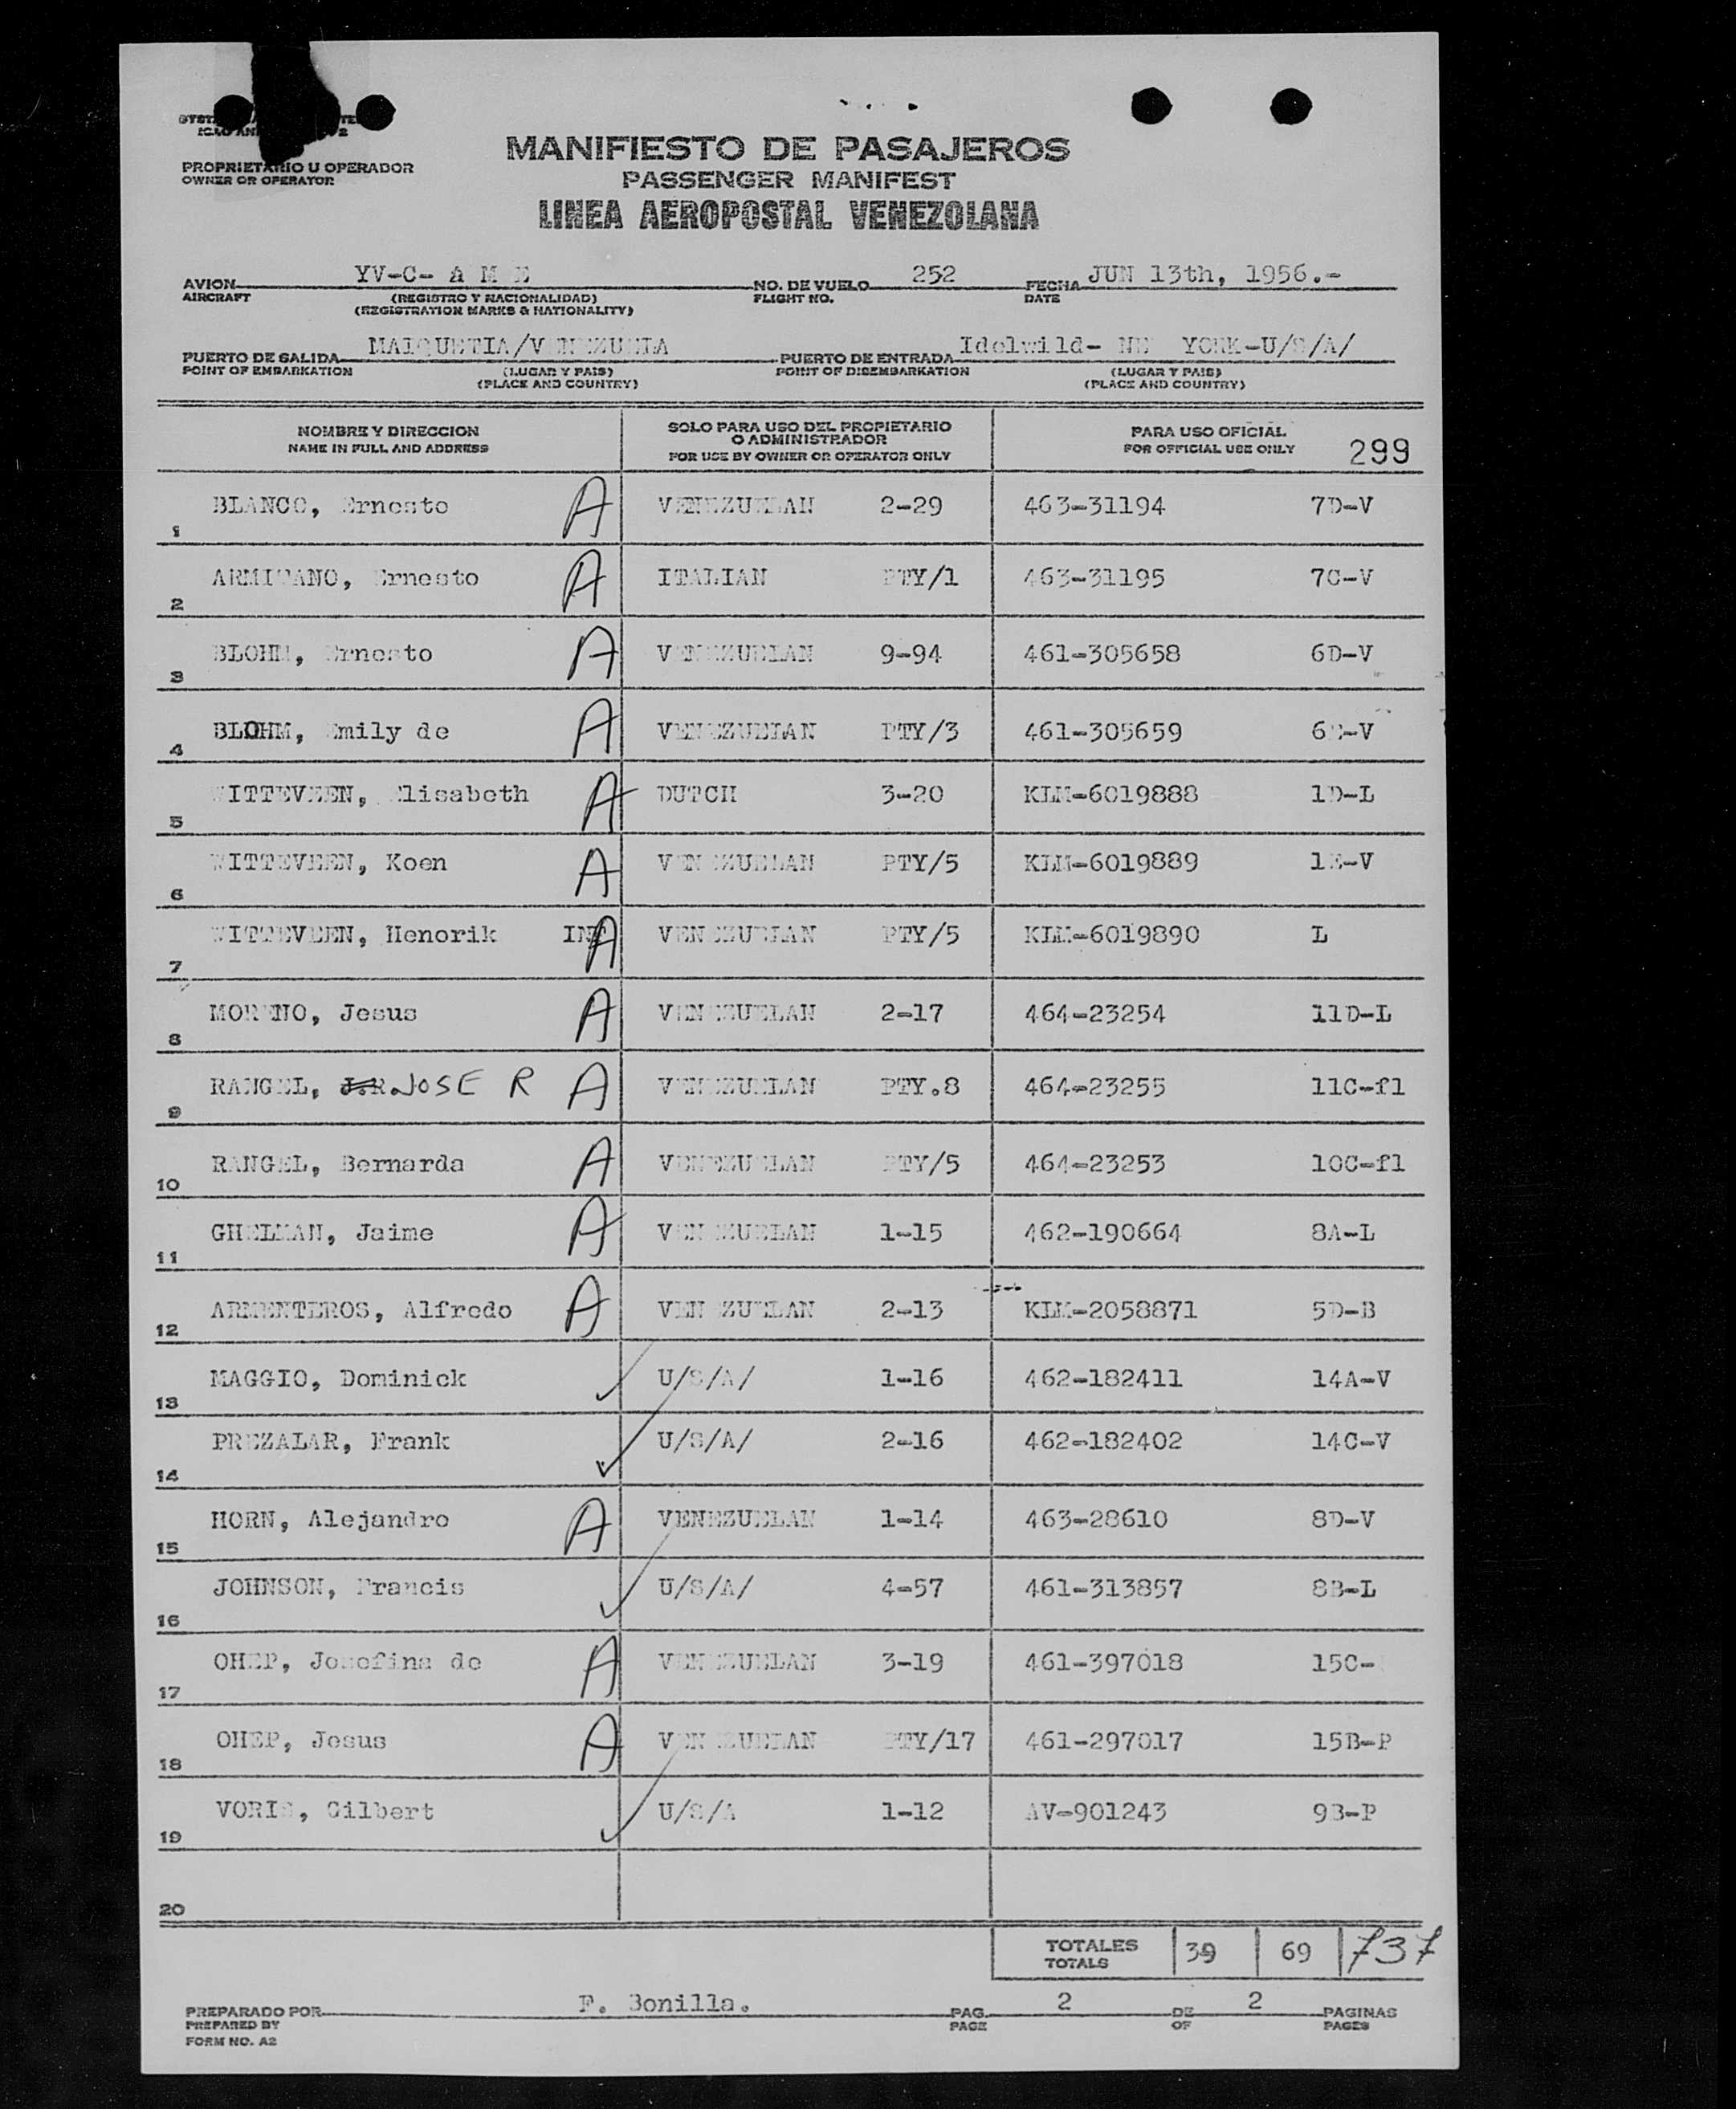 PROPRIETARIO U OPERADOR
OWNER OR OPERATOR
MANIFIESTO DE PASAJEROS
PASSENGER MANIFEST
LINEA AEROPOSTAL VENEZOLANA
AVION YV-C- A M E NO. DE VUELO 252 FECHA JUN 13th, 1956.-
AIRCRAFT (REGISTRO Y NACIONALIDAD) FLIGHT NO. DATE
(REGISTRATION MARKS & NATIONALITY)
PUERTO DE SALIDA MAIQUETIA/VENEZUELA PUERTO DE ENTRADA Idelwild- NE YORK-U/S/A/
POINT OF EMBARKATION (LUGAR Y PAIS) POINT OF DISEMBARKATION (LUGAR Y PAIS)
(PLACE AND COUNTRY) (PLACE AND COUNTRY)
NOMBRE Y DIRECCION SOLO PARA USO DEL PROPIETARIO PARA USO OFICIAL
NAME IN FULL AND ADDRESS O ADMINISTRADOR FOR OFFICIAL USE ONLY 299
FOR USE BY OWNER OR OPERATOR ONLY
1 BLANCO, Ernesto A VENEZUELAN 2-29 463-31194 7D-V
2 ARMITANO, Ernesto A ITALIAN PTY/1 463-31195 7C-V
3 BLOHM, Ernesto A VENEZUELAN 9-94 461-305658 6D-V
4 BLOHM, Emily de A VENEZUELAN PTY/3 461-305659 6C-V
5 WITTEVEEN, Elisabeth A DUTCH 3-20 KLM-6019888 1D-L
6 WITTEVEEN, Koen A VENEZUELAN PTY/5 KLM-6019889 1E-V
7 WITTEVEEN, Henorik INF A VENEZUELAN PTY/5 KLM-6019890 L
8 MORENO, Jesus A VENEZUELAN 2-17 464-23254 11D-L
9 RANGEL, J.R. JOSE R A VENEZUELAN PTY.8 464-23255 11C-fl
10 RANGEL, Bernarda A VENEZUELAN PTY/5 464-23253 10C-fl
11 GHELMAN, Jaime A VENEZUELAN 1-15 462-190664 8A-L
12 ARMENTEROS, Alfredo A VENEZUELAN 2-13 KLM-2058871 5D-B
13 MAGGIO, Dominick U/S/A/ 1-16 462-182411 14A-V
14 PREZALAR, Frank U/S/A/ 2-16 462-182402 14C-V
15 HORN, Alejandro A VENEZUELAN 1-14 463-28610 8D-V
16 JOHNSON, Francis U/S/A/ 4-57 461-313857 8B-L
17 OHEP, Josefina de A VENEZUELAN 3-19 461-397018 15C-
18 OHEP, Jesus A VENEZUELAN PTY/17 461-297017 15B-P
19 VORIS, Gilbert U/S/A 1-12 AV-901243 9B-P
20
TOTALES 39 69 737
TOTALS
PREPARADO POR F. Bonilla. PAG. 2 DE 2 PAGINAS
PREPARED BY PAGE OF PAGES
FORM NO. A2